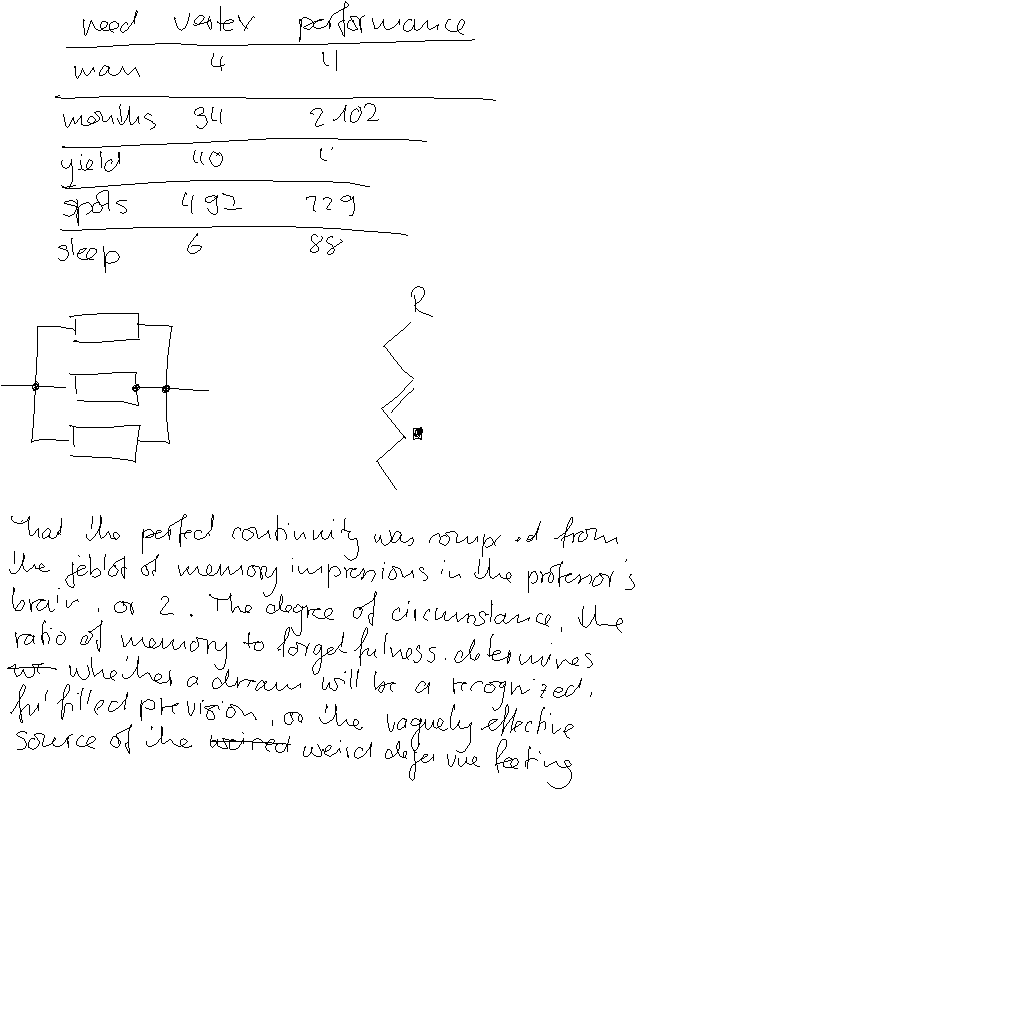 need vertex performance
man 4 4
months 34 2 102
yield 40 4
spots 492 729
sleep 6 88
R
that the perfect continuity was from
the of memory impressions in the professor's
brain, or 2. The degree of circumstance, the
ratio of memory to forgetfulness. determines
whether a dream will be a recognized,
fulfilled prevision, or the vaguely effective
source of the weired weird deja vue feeling